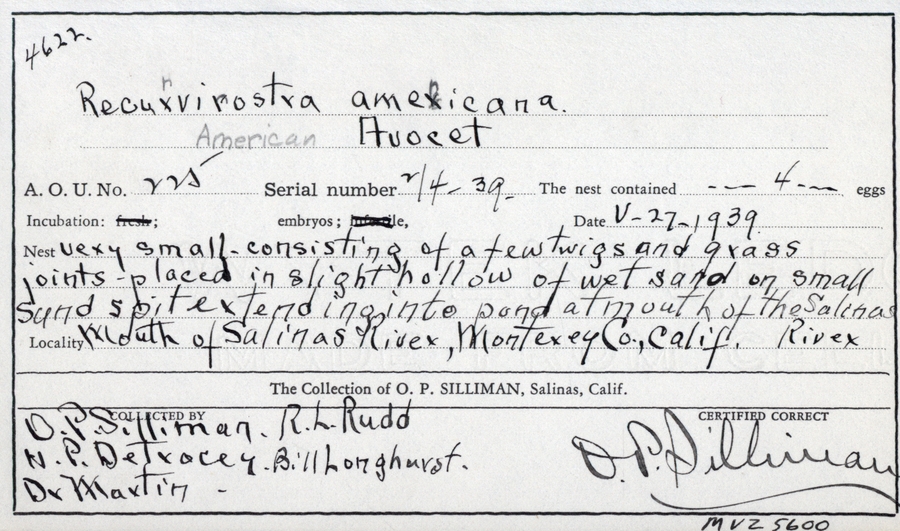 4622.
Recurvirostra americana.
American Avocet
A. O. U. No. 225 Serial number 2/4-39 The nest contained --- 4 --- eggs
Incubation: fresh; embryos; infertile, Date V-27-1939.
Nest very small-consisting of a few twigs and grass
joints-placed in slight hollow of wet sand on small
Sand spit extending into pond at mouth of the Salinas
Locality Mouth of Salinas River, Monterey Co., Calif. River
The Collection of O. P. SILLIMAN, Salinas, Calif.
COLLECTED BY CERTIFIED CORRECT
O.P. Silliman. R.L. Rudd
N.P. Detracey. Bill Longhurst.
Dr Martin -
O.P. Silliman
MVZ 5600